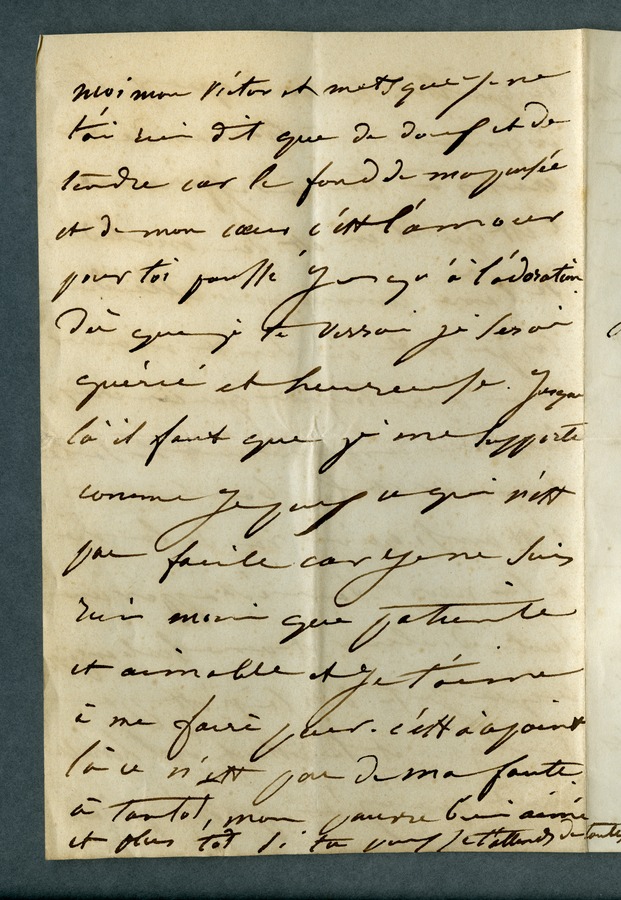 moi mon Victor et mets que je ne
t'ai rien dit que de doux et de
tendre car le fond de ma pensée
et de mon cœur c'est l'amour
pour toi poussé jusqu'à l'adoration
Dès que je te verrai je serai
guérie et heureuse. Jusque
là il faut que je me supporte
comme je peux ce qui n'est
pas facile car je ne suis
rien moins que patiente
et aimable et je t'aime
à me faire peur. c'est à ce point
là ce n'est pas de ma faute.
à tantôt, mon pauvre bien aimé
et plus tôt si tu peux je t'attends de toutes